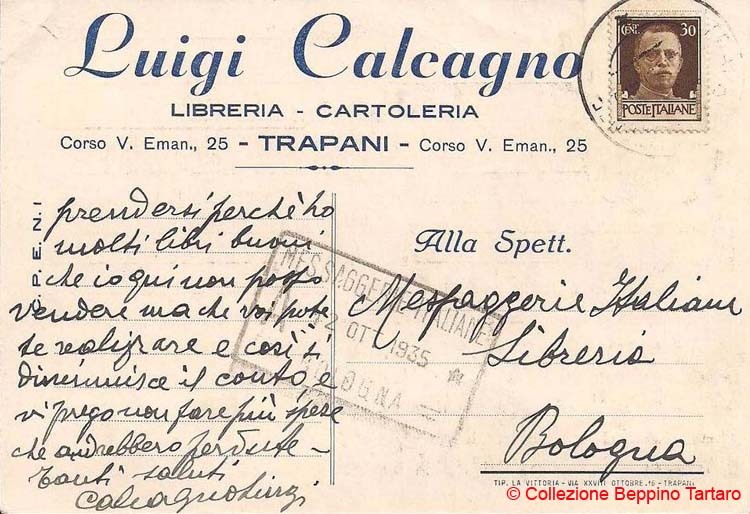 Luigi Calcagno
LIBRERIA - CARTOLERIA
Corso V. Eman., 25 - TRAPANI - Corso V. Eman., 25
CENT. 30
POSTE ITALIANE
C. P. E. N. 1
prendersi perché ho
molti libri buoni
che io qui non posso
vendere ma che voi potete
realizzare e così si
diminuisce il conto, e
vi prego non fare più spese
che andrebbero perdute -
Tanti saluti
Calcagno Luigi
MESSAGGERIE ITALIANE
2 OTT 1935
BOLOGNA
Alla Spett.
Messaggerie Italiane
Libreria
Bologna
TIP. LA VITTORIA - VIA XXVIII OTTOBRE, 16 - TRAPANI
© Collezione Beppino Tartaro